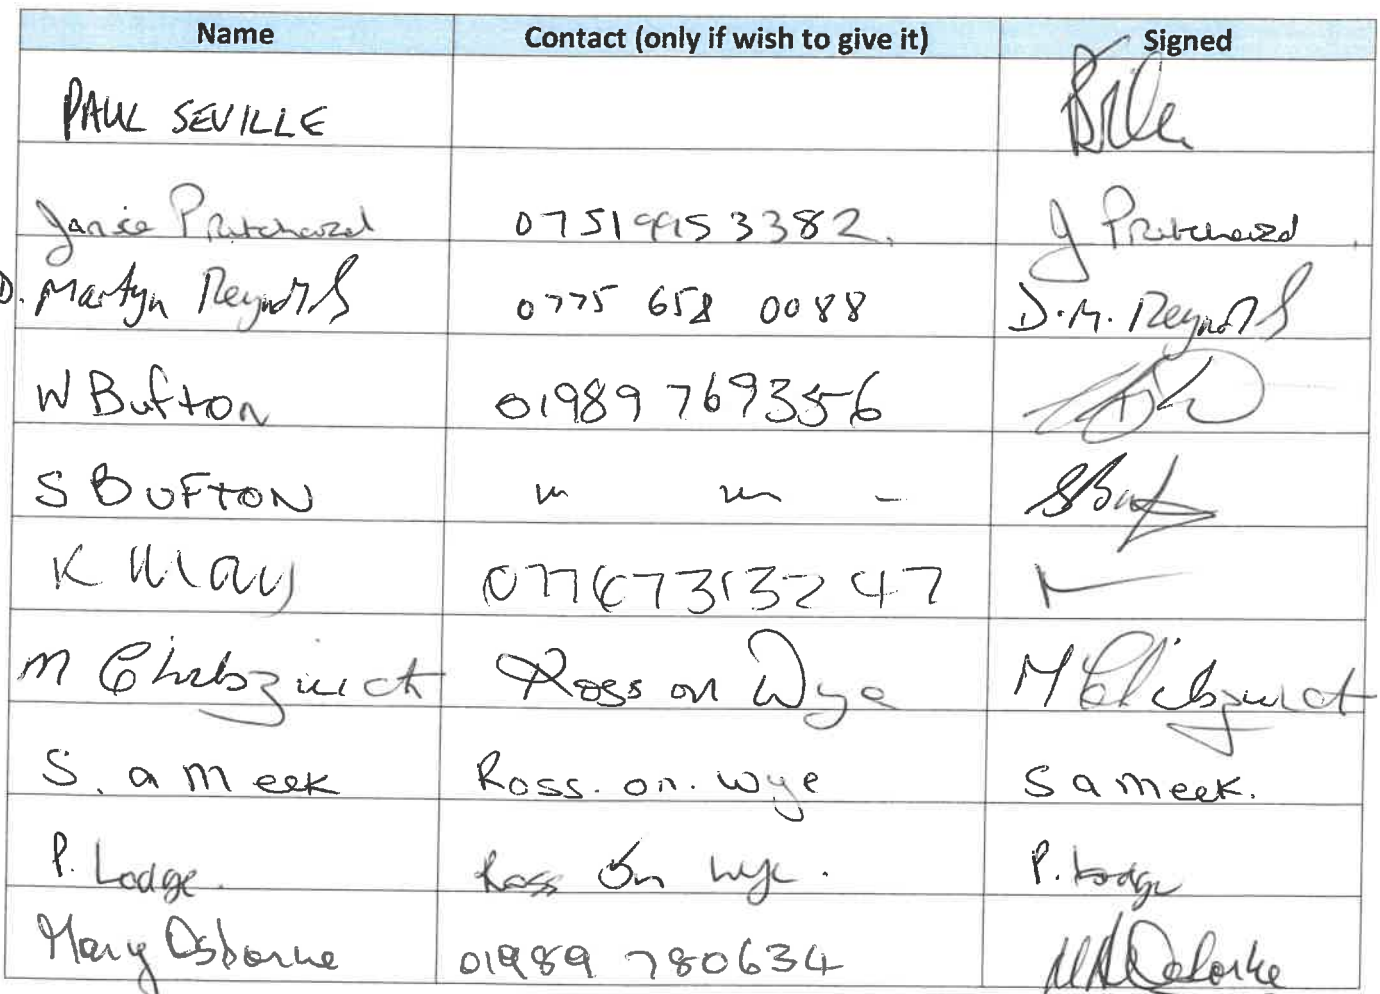 Name Contact (only if wish to give it) Signed
PAUL SEVILLE
Janice Pritchard 07519953382. J Pritchard
D. Martyn Reynolds 0775 658 0088 D.M. Reynolds
W Bufton 01989 769356
S BUFTON " " - S Buf
K May 07767313247
M Ross on Wye M
S. a Meek Ross. on. wye S a Meek.
P. Lodge. Ross On Wye. P. Lodge
Mary Osborne 01989 780634 Osborne